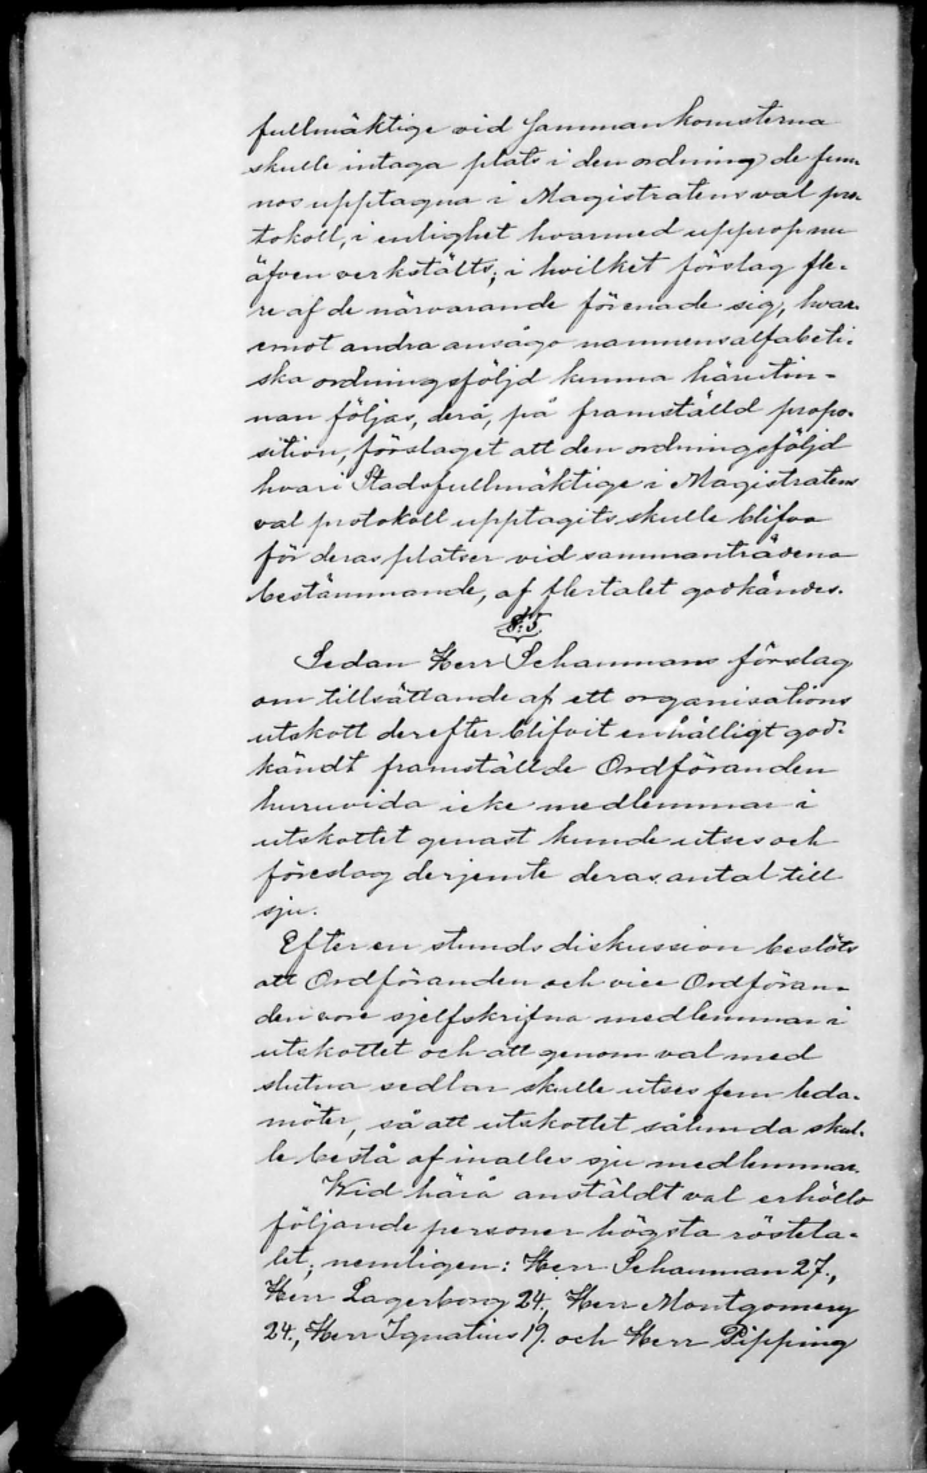 fullmäktige vid sammankomsterna
skulle intaga plats i den ordning de fun-
nos upptagna i Magistratens val pro-
tokoll, i enlighet hvarmed upprop nu
äfven verkstälts; i hvilket förslag fle-
re af de närvarande förenade sig, hvar-
emot andra ansågo namnens alfabeti-
ska ordningsföljd kunna härutin-
nan följas, derå, på framställd propo-
sition, förslaget att den ordningsföljd
hvari Stadsfullmäktige i Magistratens
val protokoll upptagits skulle blifva
för deras platser vid sammanträdena
bestämmande, af flertalet godkändes.
§:5.
Sedan Herr Schaumans förslag
om tillsättande af ett organisations
utskott derefter blifvit enhälligt god-
kändt framställde Ordföranden
huruvida icke medlemmar i
utskottet genast kunde utses och
föreslog derjemte deras antal till
sju.
Efter en stunds diskussion beslöts
att Ordföranden och vice Ordföran-
den vore sjelfskrifna medlemmar i
utskottet och att genom val med
slutna sedlar skulle utses fem leda-
möter, så att utskottet sålunda skul-
le bestå af inalles sju medlemmar.
Wid härå anstäldt val erhöllo
följande personer högsta rösteta-
let, nemligen: Herr Schauman 27.,
Herr Lagerborg 24., Herr Montgomery
24., Herr Ignatius 19. och Herr Pipping